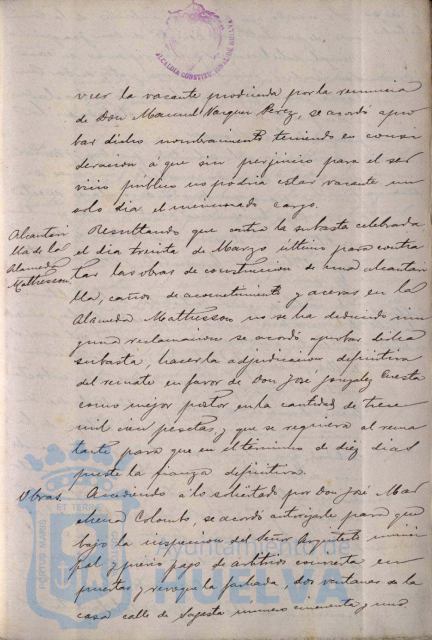 ALCALDIA CONSTITUCIONAL DE HUELVA
veer la vacante producida por la renuncia
de Don Manuel Vazquez Perez, se acordó apro
bar dicho nombramiento teniendo en consi
deracion á que sin perjuicio para el ser
vicio público no podria estar vacante un
solo dia el mencionado cargo.
Alcantari
lla de la
Alameda
Mathessson
Resultando que contra la subasta celebrada
el dia treinta de Marzo último para contra
tar las obras de construccion de una alcantari
lla, caños de acometimiento y aceras en la
Alameda Mathesson no se ha deducido nin
guna reclamacion se acordó aprobar dicha
subasta hacer la adjudicacion definitiva
del remate en favor de Don José Gonzalez Cuesta
como mejor postor en la cantidad de trece
mil cien pesetas, y que se requiera al rema
tante para que en el término de diez dias
preste la fianza definitiva.
Obras.
Accediendo á lo solicitado por Don José Mar
chena Colombo, se acordó autorizarle para que
bajo la inspeccion del Señor Arquitecto munici
pal y previo pago de arbitrios convierta en
puertas y revoque la fachada, dos ventanas de la
casa calle de Sagasta número cincuenta y uno
PORTUS MARIS ET TERRE
Ayuntamiento de
HUELVA